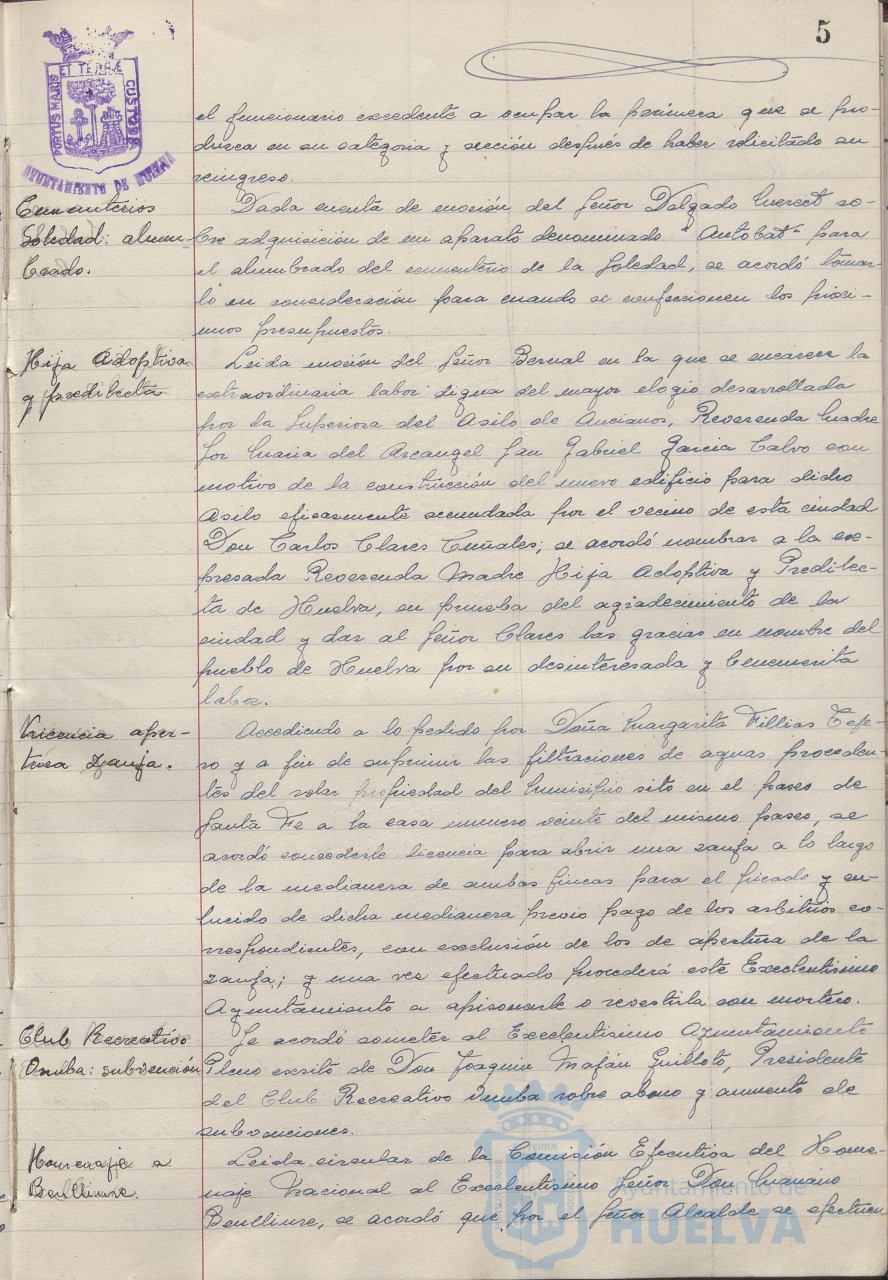 5
PORTUS MARIS ET TERRAE CUSTODIA
AYUNTAMIENTO DE HUELVA
el funcionario excedente a ocupar la primera que se pro-
duzca en su categoria y sección después de haber solicitado su
reingreso.
Cementerios
Soledad: alum-
brado.
Dada cuenta de moción del Señor Delgado so-
bre adquisición de un aparato denominado "Autobat" para
el alumbrado del cementerio de la Soledad, se acordó tomar-
lo en consideración para cuando se confeccionen los próxi-
mos presupuestos.
Hija Adoptiva
y predilecta
Leida moción del Señor Bernal en la que se encarece la
extraordinaria labor digna del mayor elogio desarrollada
por la Superiora del Asilo de Ancianos, Reverenda Madre
Sor Maria del Arcangel San Gabriel Garcia Calvo con
motivo de la construcción del nuevo edificio para dicho
Asilo eficazmente secundada por el vecino de esta ciudad
Don Carlos Clares; se acordó nombrar a la ex-
presada Reverenda Madre Hija Adoptiva y Predilec-
ta de Huelva, en prueba del agradecimiento de la
ciudad y dar al Señor Clares las gracias en nombre del
pueblo de Huelva por su desinteresada y benemerita
labor.
Licencia aper-
tura zanja.
Accediendo a lo pedido por Doña Margarita Fillias Teje-
ro y a fin de suprimir las filtraciones de aguas proceden-
tes del solar propiedad del Municipio sito en el paseo de
Santa Fe a la casa numero veinte del mismo paseo, se
acordó concederle licencia para abrir una zanja a lo largo
de la medianera de ambas fincas para el picado y en-
lucido de dicha medianera previo pago de los arbitrios co-
rrespondientes, con exclusión de los de apertura de la
zanja; y una vez efectuado procederá este Excelentisimo
Ayuntamiento a apisonarle o revestirla con mortero.
Club Recreativo
Onuba: subvención
Se acordó someter al Excelentisimo Ayuntamiento
Pleno escrito de Don Joaquin Guilloto, Presidente
del Club Recreativo Onuba sobre abono y aumento de
subvenciones.
Homenaje a
Benlliure.
Leida circular de la Comisión Ejecutiva del Home-
naje Nacional al Excelentisimo Señor Don Mariano
Benlliure, se acordó que por el Señor Alcalde se efectuen
Ayuntamiento de
HUELVA